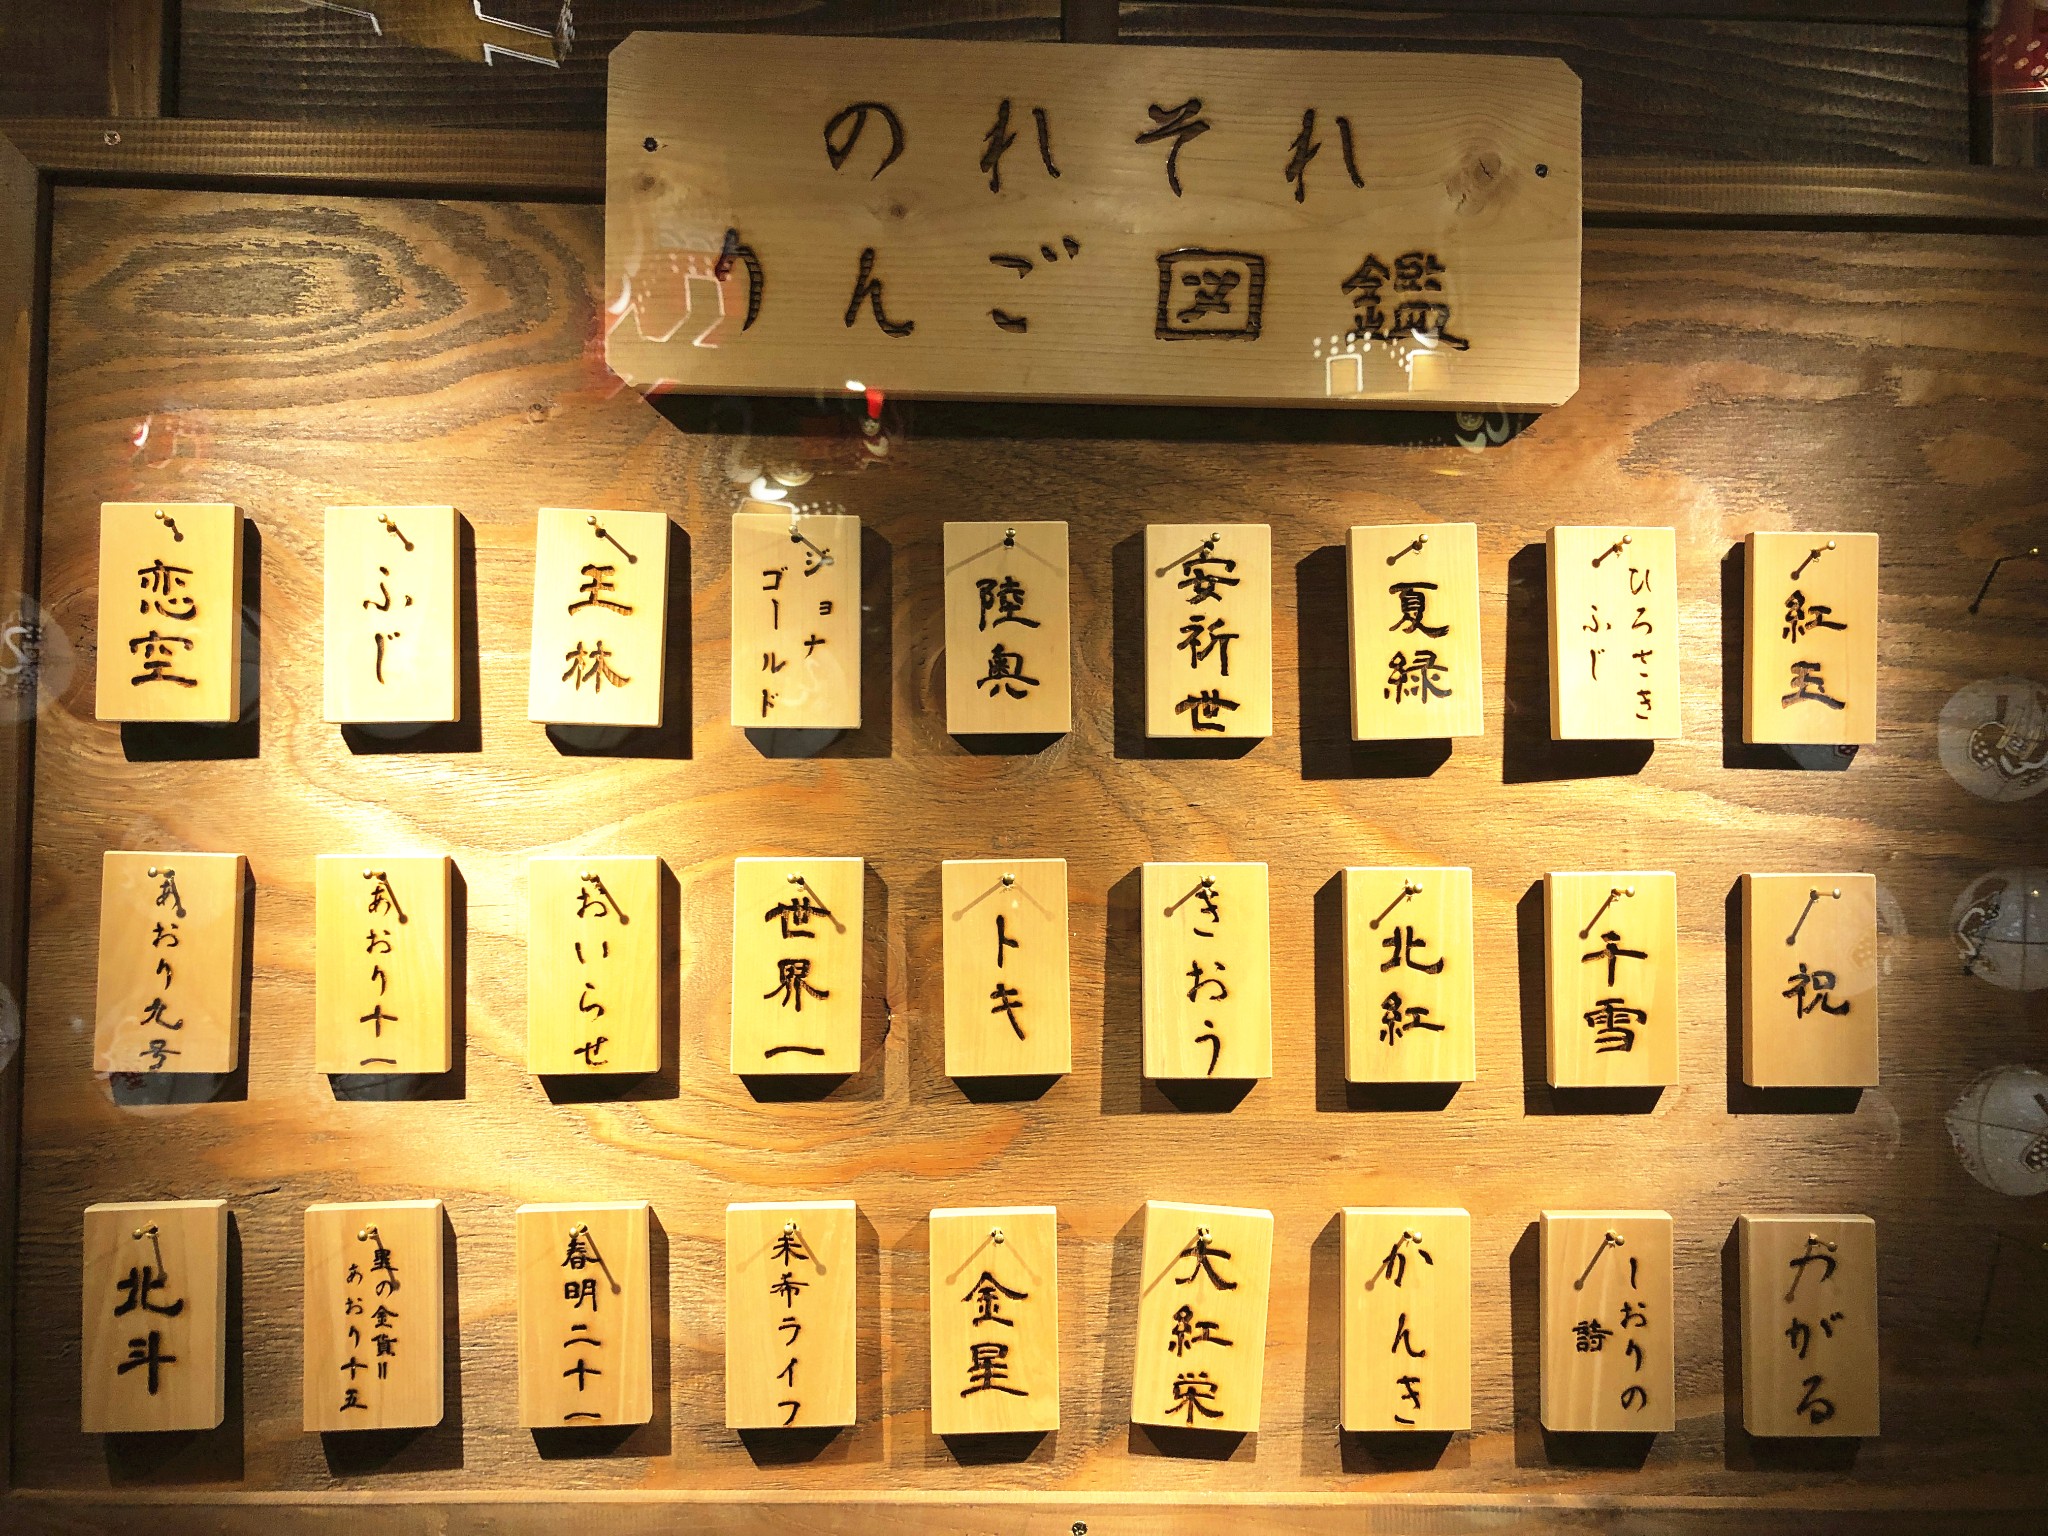 のれそれ
りんご図鑑
恋空
ふじ
王林
ジョナ
ゴールド
陸奥
安祈世
夏緑
ひろさき
ふじ
紅玉
あおり九号
あおり十一
おいらせ
世界一
トキ
きおう
北紅
千雪
祝
北斗
星の金貨＝
あおり十五
春明二十一
未希ライフ
金星
大紅栄
かんき
しおりの
詩
つがる